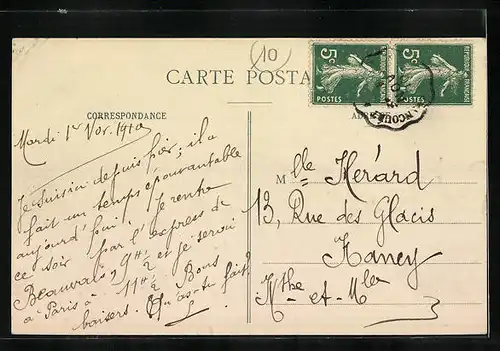 10
CARTE POSTA
5c
RÉPUBLIQUE FRANÇAISE
POSTES
5c
RÉPUBLIQUE FRANÇAISE
POSTES
CORRESPONDANCE
Mardi 1er Nov. 1910
Je suis ici depuis hier; il a
fait un temps épouvantable
aujourd'hui. Je rentre
ce soir par l'express de
Beauvais, 9H 1/2 et je serai
à Paris à 11H 1/2. Bons
baisers. Qu'as-tu fait?
Mlle Hérard
13, Rue des Glacis
Nancy
Mthe-et-Mlle